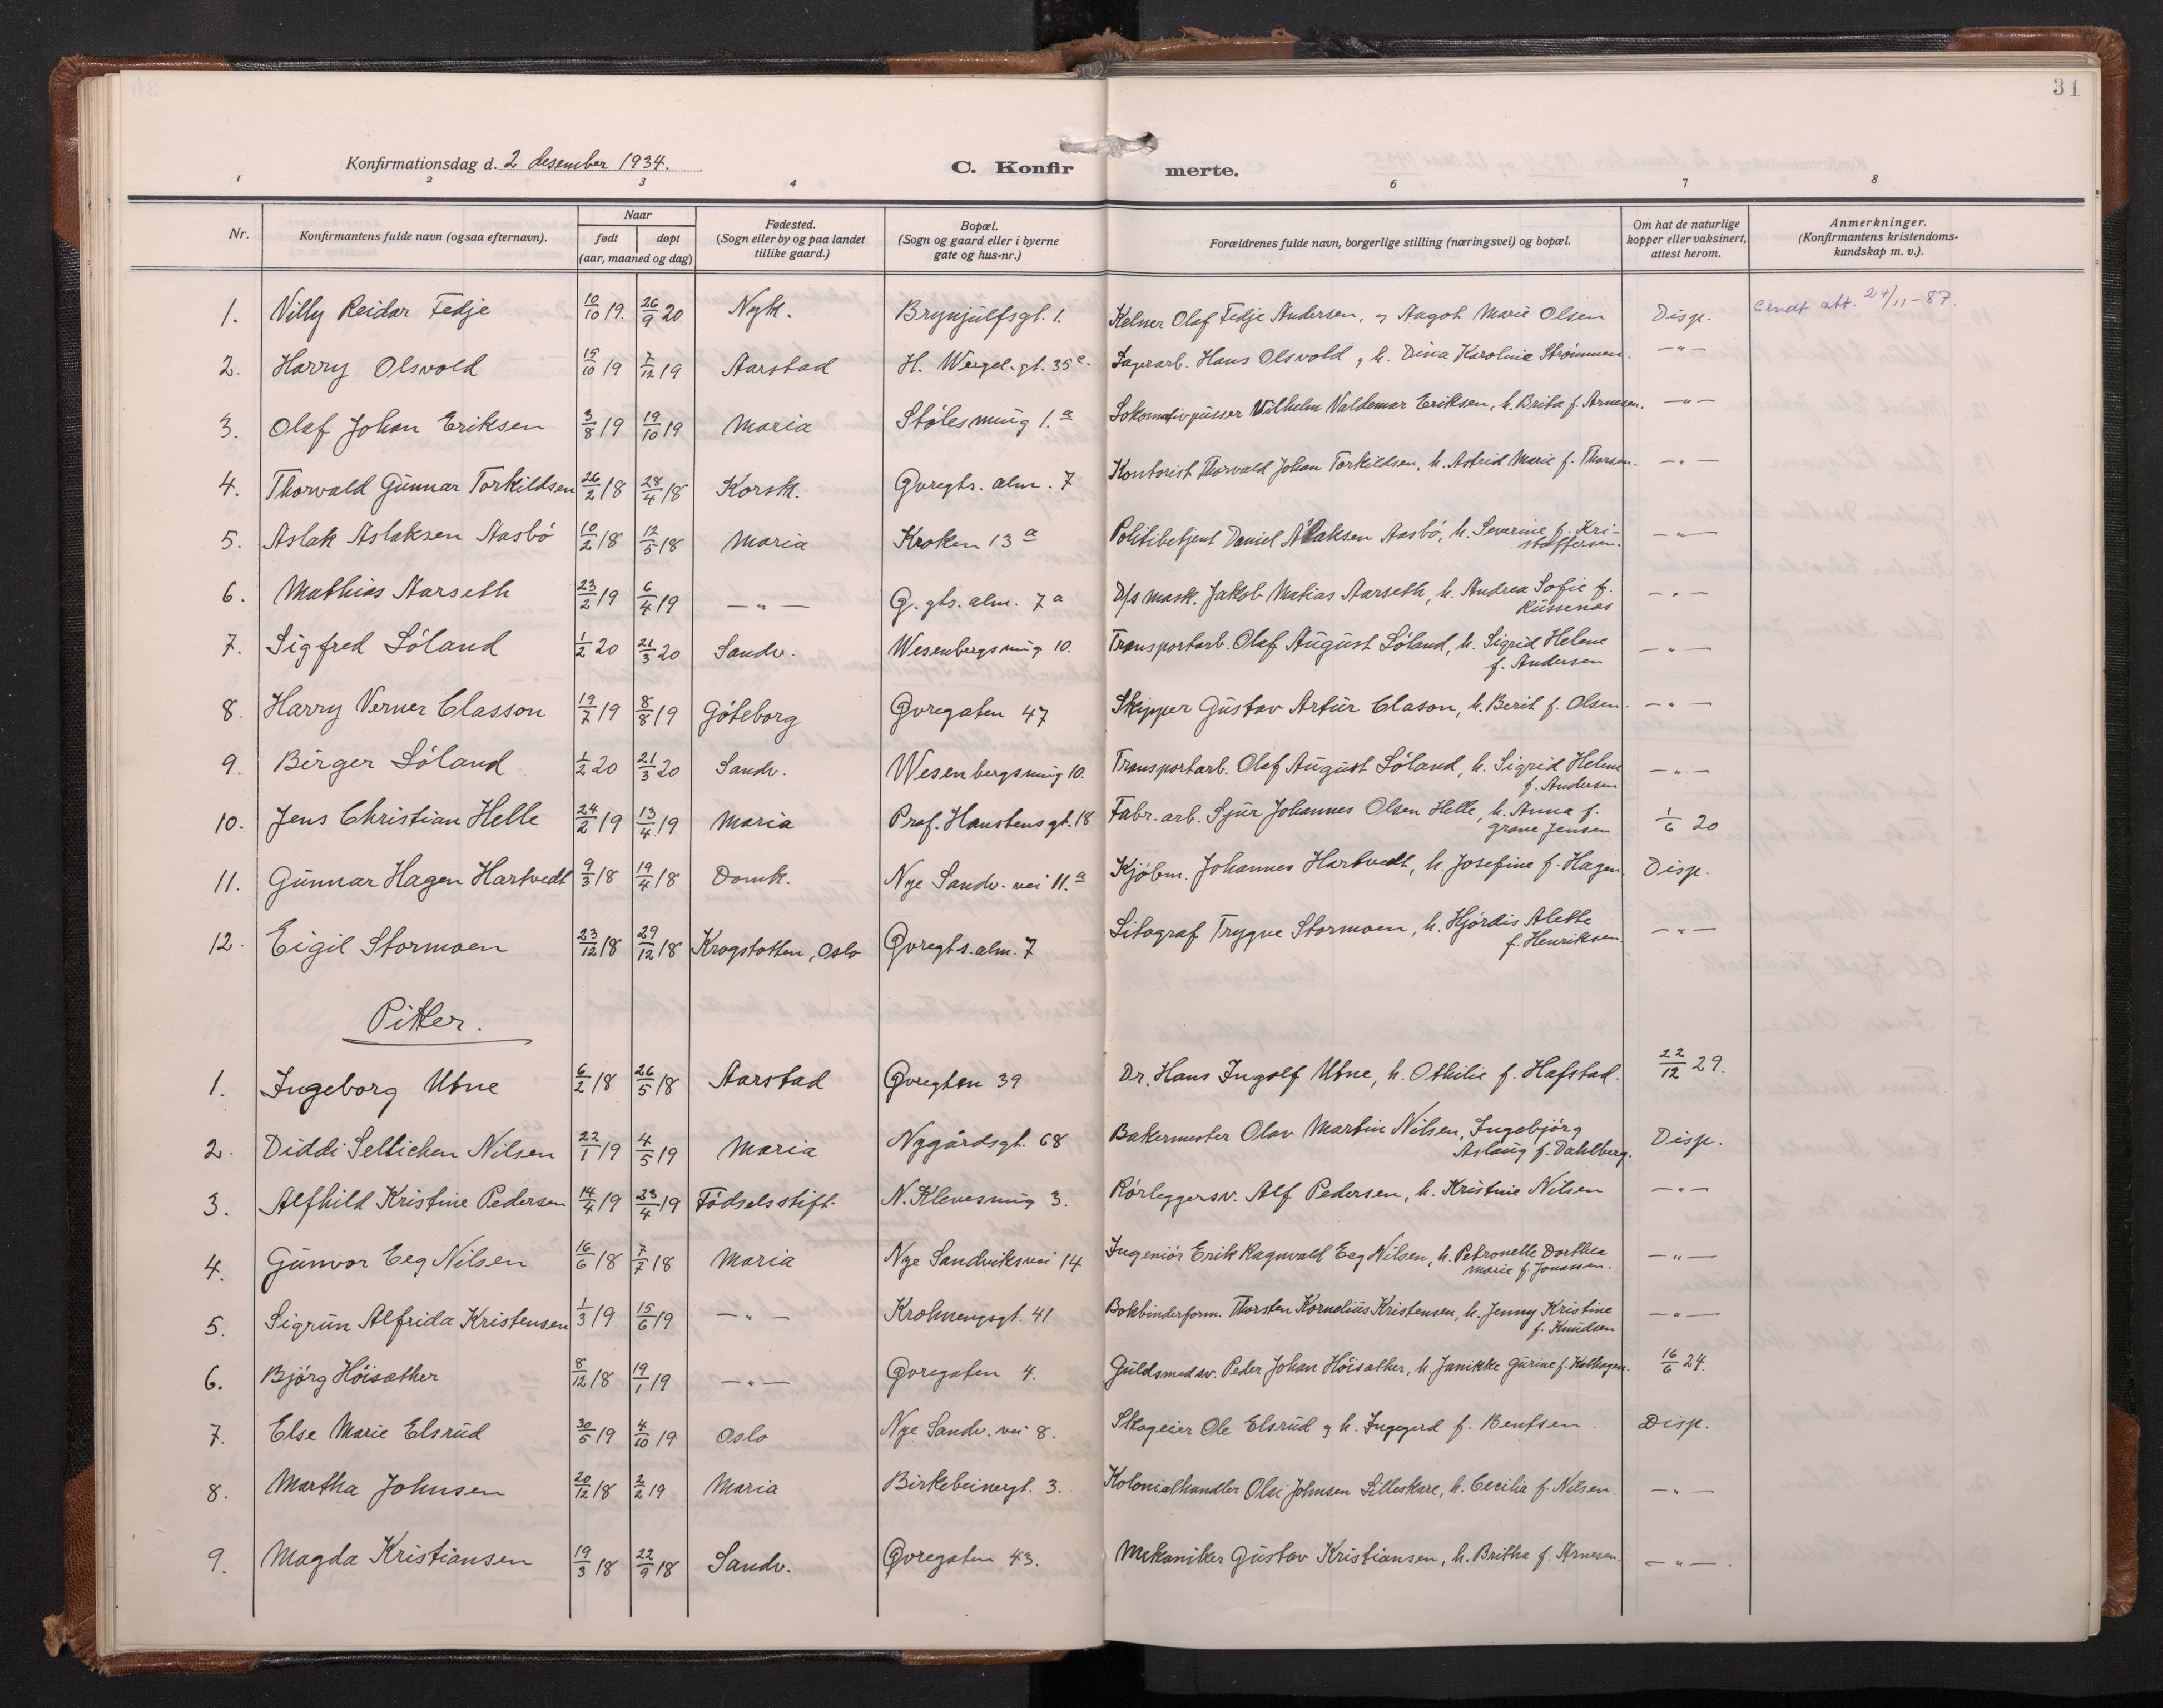 31
Konfirmationsdag d. 2 desember 1934.
C. Konfirmerte.
1 2 3 4 6 7 8
Nr.
Konfirmantens fulde navn (ogsaa efternavn).
Naar
født døpt
(aar, maaned og dag)
Fødested.
(Sogn eller by og paa landet
tillike gaard.)
Bopæl.
(Sogn og gaard eller i byerne
gate og hus-nr.)
Forældrenes fulde navn, borgerlige stilling (næringsvei) og bopæl.
Om hat de naturlige
kopper eller vaksinert,
attest herom.
Anmerkninger.
(Konfirmantens kristendoms-
kundskap m. v.).
1. Villy Reidar Fedje 10/10 19. 26/9 20 Nyk. Brynjulfsgt. 1. Kelner Olaf Fedje Andersen, og Aagot Marie Olsen Disp. Sendt att. 24/11-87.
2. Harry Olsvold 15/10 19 7/12 19 Aarstad H. Wergel. gt. 35c. Lagerarb. Hans Olsvold, h. Dina Karoline Strømmen. —"—
3. Olaf Johan Eriksen 3/8 19 19/10 19 Maria Stølesmug 1.a Lokomotivpusser Vilhelm Valdemar Eriksen, h. Brita f. Arnesen. —"—
4. Thorvald Gunnar Torkildsen 26/2 18 28/4 18 Korsk. Øvregts. alm. 7 Kontorist Thorvald Johan Torkildsen, h. Astrid Marie f. Thorsen. —"—
5. Aslak Aslaksen Aasbö 10/2 18 12/5 18 Maria Kroken 13a Politibetjent Daniel Aslaksen Aasbö, h. Severine f. Kri-
stoffersen. —"—
6. Mathias Aarseth 23/2 19 6/4 19 —"— Ø. gts. alm. 7a D/s mask. Jakob Matias Aarseth, h. Andrea Sofie f.
Russenes —"—
7. Sigfred Löland 1/2 20 21/3 20 Sandv. Wesenbergsmug 10. Transportarb. Olaf August Löland, h. Sigrid Helene
f. Andersen —"—
8. Harry Verner Classon 19/7 19 8/8 19 Göteborg Øvregaten 47 Skipper Gustav Artur Clason, h. Berit f. Olsen. —"—
9. Birger Löland 1/2 20 21/3 20 Sandv. Wesenbergsmug 10. Transportarb. Olaf August Löland, h. Sigrid Helene
f. Andersen —"—
10. Jens Christian Helle 24/2 19 13/4 19 Maria Prof. Hanstens gt. 18 Fabr. arb. Sjur Johannes Olsen Helle, h. Anna f.
Grave Jensen 1/6 20
11. Gunnar Hagen Hartvedt 9/3 18 19/4 18 Domk. Nye Sandv. vei 11.a Kjöbm. Johannes Hartvedt, h. Josefine f. Hagen. Disp.
12. Eigil Stormoen 23/12 18 29/12 18 Krogstøtten, Oslo Øvregts. alm. 7 Litograf Trygve Stormoen, h. Hjördis Alette
f. Henriksen. —"—
Piker.
1. Ingeborg Utne 6/2 18 26/5 18 Aarstad Øvregten 39 Dr. Hans Ingolf Utne, h. Othilie f. Hafstad. 22/12 29.
2. Diddi Seltichen Nilsen 22/1 19 4/5 19 Maria Nygårdsgt. 68 Bakermester Olav Martin Nilsen, Ingebjörg
Aslaug f. Dahlberg. Disp.
3. Alfhild Kristine Pedersen 14/4 19 23/4 19 Födselsstift. N. Klevesmug 3. Rörleggersv. Alf Pedersen, h. Kristine Nilsen —"—
4. Gunvor Eeg Nilsen 16/6 18 7/7 18 Maria Nye Sandviksvei 14 Ingeniör Erik Ragnvald Eeg Nilsen, h. Petronelle Dorthea
Marie f. Jonassen. —"—
5. Sigrun Alfrida Kristensen 1/3 19 15/6 19 —"— Krohnengsgt. 41 Bokbinderform. Thorsten Kornelius Kristensen, h. Jenny Kristine
f. Knudsen —"—
6. Björg Höisæther 8/12 18 19/1 19 —"— Øvregaten 4. Guldsmedsv. Peder Johan Höisæther, h. Janikke Gurine f. 16/6 24.
7. Else Marie Elsrud 30/5 19 4/10 19 Oslo Nye Sandv. vei 8. Skogeier Ole Elsrud og h. Ingegerd f. Bentsen Disp.
8. Martha Johnsen 20/12 18 2/2 19 Maria Birkebeinergt. 3. Kolonialhandler Olai Johnsen Lilleskare, h. Cecilia f. Nilsen. —"—
9. Magda Kristiansen 19/3 18 22/9 18 Sandv. Øvregaten 43. Mekaniker Gustav Kristiansen, h. Britha f. Arnesen. —"—